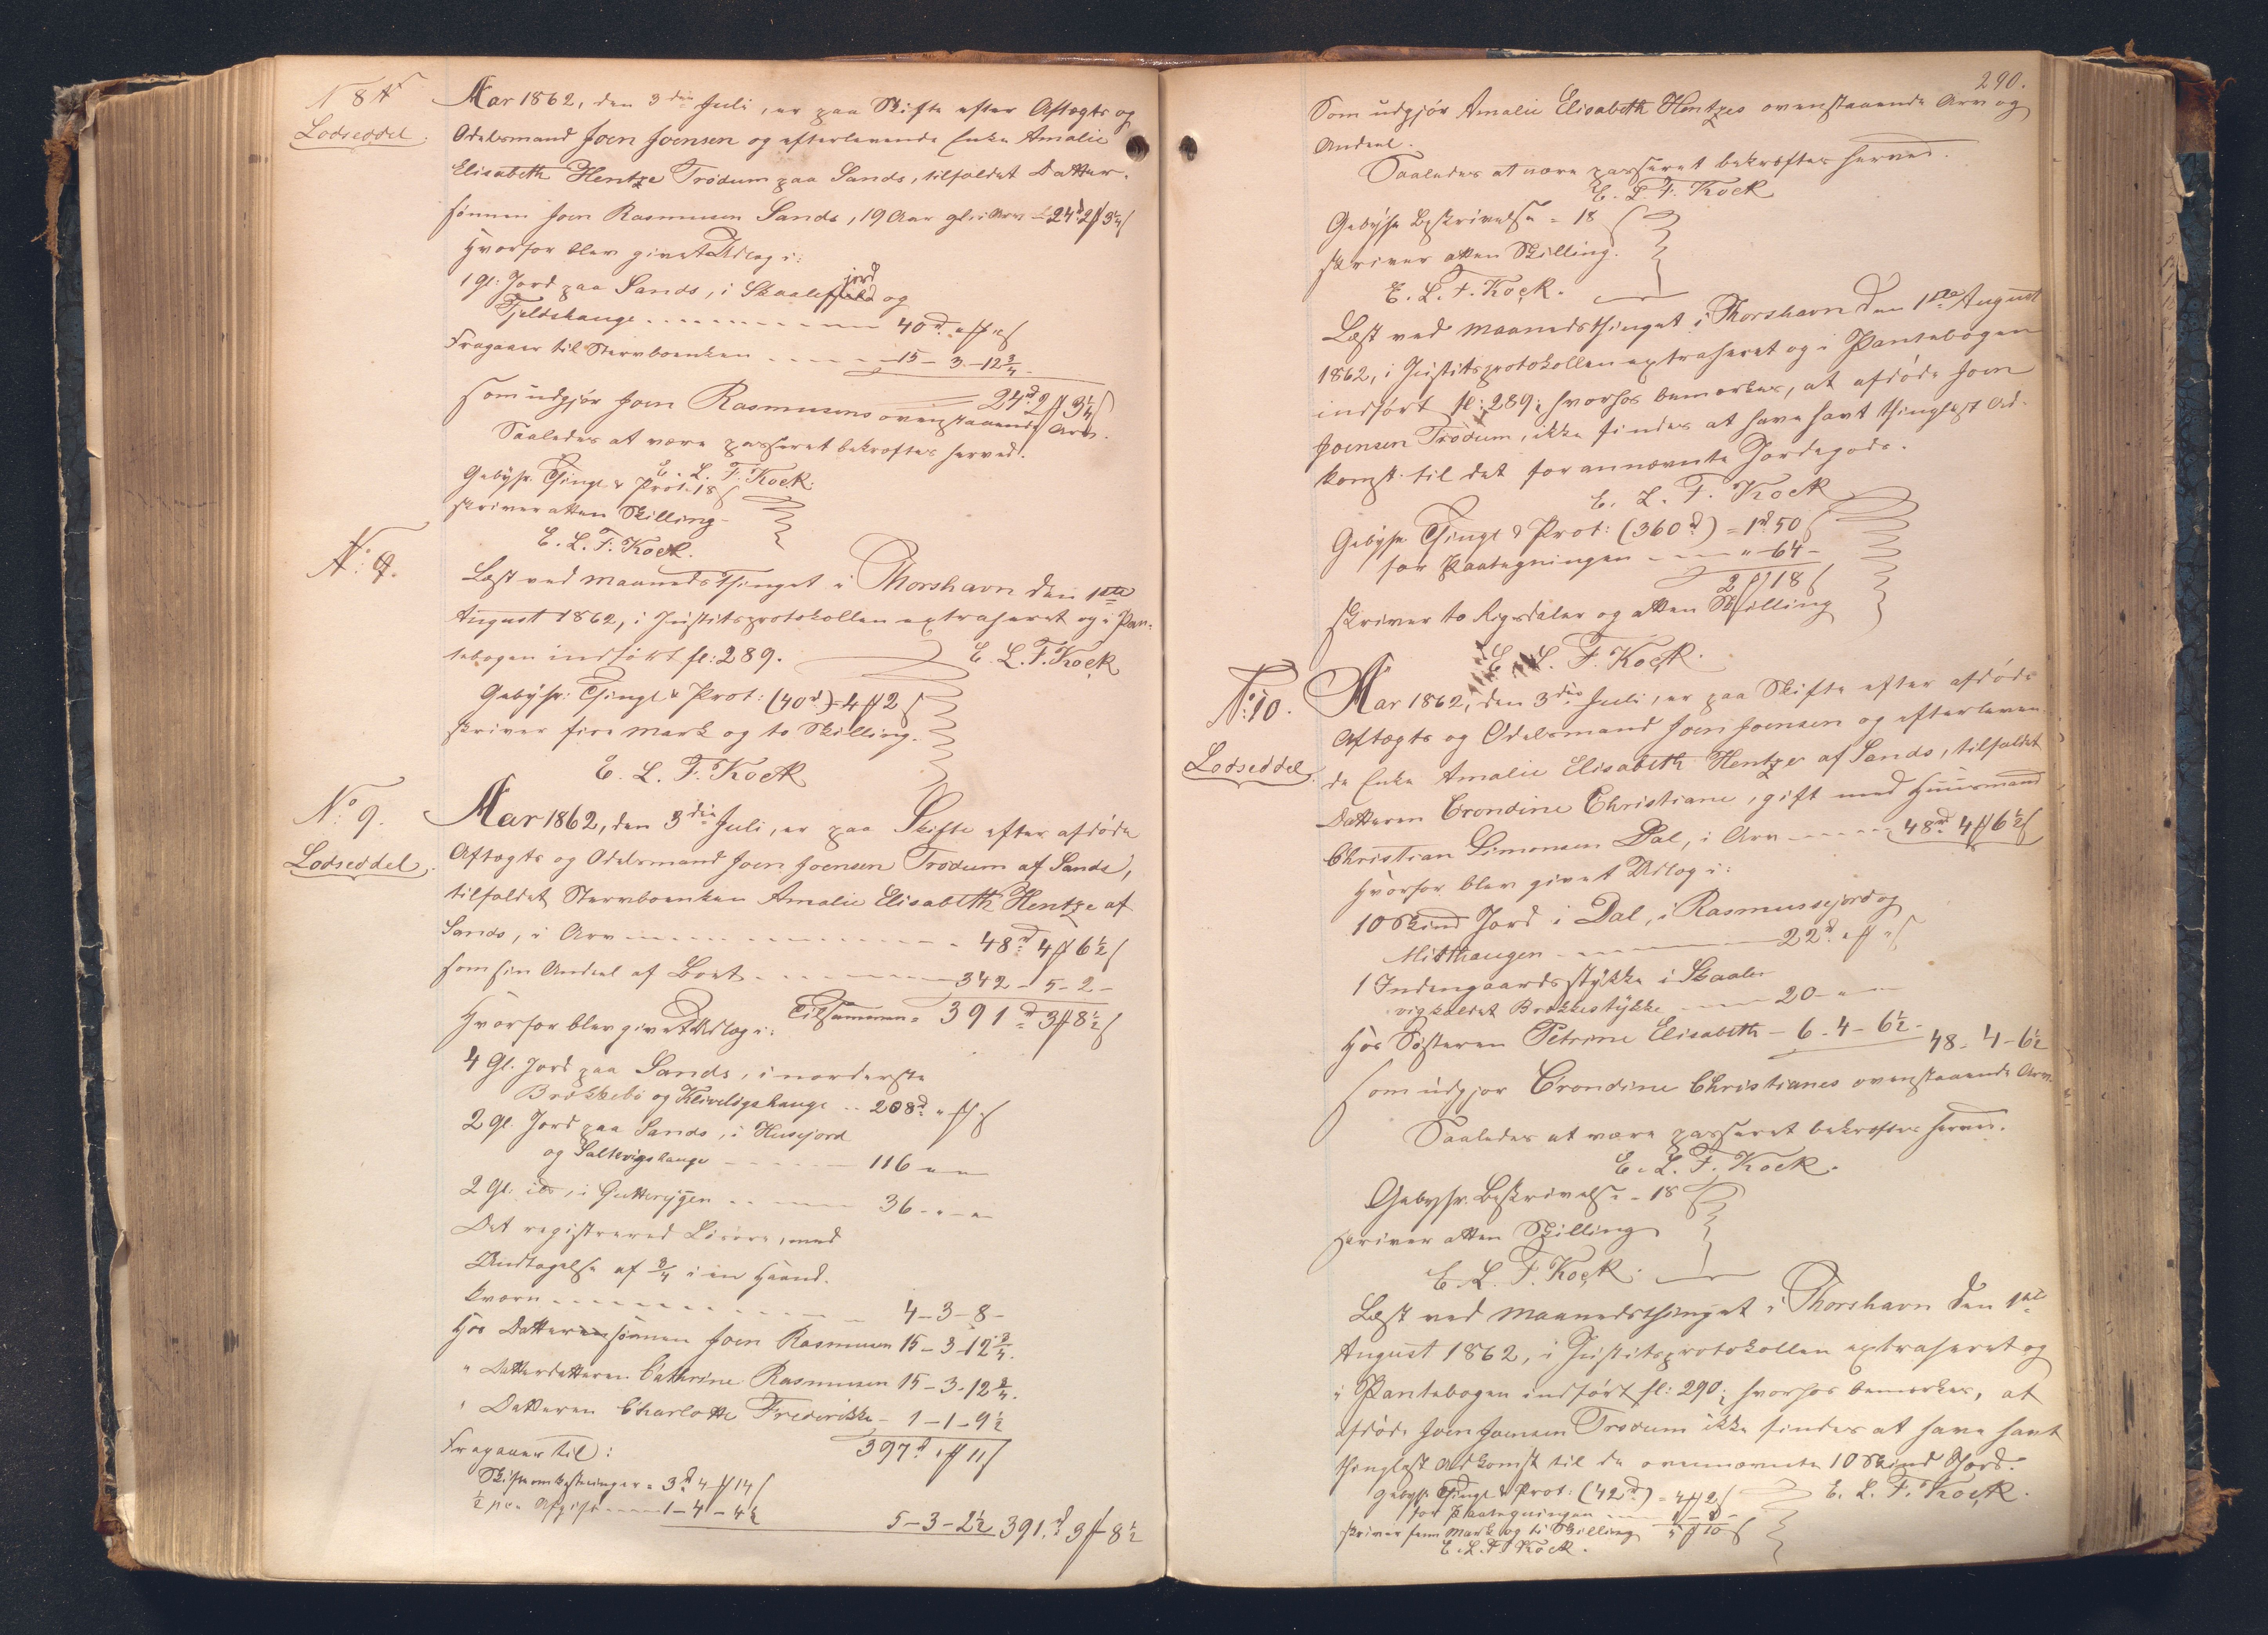 N 8 A
Lodseddel.
Aar 1862, den 3die Juli, er paa Skifte efter Aftægts og
Odelsmand Joen Joensen og efterlevende Enke Amalie
Elisabeth Hentze Trødum paa Sands, tilfaldet Datter-
sønnen Joen Rasmussen Sands, 19 Aar gl. i Arv - 24rd 2 mk 3¼ s
Hvorfor blev givet Udlæg i:
1 Gl: Jord paa Sands, i jord og
Tjeldshauge - - - 40rd " mk " s
Fragaaer til Stervboenken - - - 15 - 3 - 12¾ -
24rd 2 mk 3¼ s
som udgjør Joen Rasmussens ovenstaaende Arv.
Saaledes at være passeret bekræftes herved.
E. L. F. Kock.
Gebyhr Thingl & Prot. 18 s
skriver atten Skilling -
E. L. F. Kock.
Læst ved Maanedsthinget i Thorshavn den 1ste
August 1862, i Justitsprotokollen extraheret og i Pan-
tebogen indført fl: 289.
E. L. F. Kock
Gebyhr: Thingl & Prot: (40rd) = 4 mk 2 s
skriver fire Mark og to Skilling.
E. L. F. Kock
No 9.
Lodseddel.
Aar 1862, den 3die Juli, er paa Skifte efter afdøde
Aftægts og Odelsmand Joen Joensen Trødum af Sands,
tilfaldet Stervboenken Amalie Elisabeth Hentze af
Sands, i Arv - - - 48rd 4 mk 6½ s
som sin Andeel af Boet - - - 342 - 5 - 2 -
Tilsammen = 391rd 3 mk 8½ s
Hvorfor blev givet Udlæg i:
4 Gl. Jord paa Sands, i norderste
Brekkebø og Klivelsgahauge - - 208rd " mk " s
2 Gl. Jord paa Sands, i Husejord
og Saltvigshauge - - - 116 - " - "
2 Gl: ibd, i - - - 36 - " - "
Det registrered Løsøre, med
Undtagelse af ¾ i en Haand-
kværn - - - 4 - 3 - 8 -
Hos Dattersønnen Joen Rasmussen 15 - 3 - 12¾.
" Datterdatteren Cathrine Rasmussen 15 - 3 - 12¾.
" Datteren Charlotte Frederikke - 1 - 1 - 9½
397rd " mk 11 s
Fragaaer til:
Skifteomkostninger = 3rd 4 mk 14 s
½ pCt Afgift - - - 1 - 4 - 4½
5 - 3 - 2½ 391rd 3 mk 8½
290.
Som udgjør Amalie Elisabeth Hentzes ovenstaaende Arv og
Andeel.
Saaledes at være passeret bekræftes herved.
E. L. F. Kock
Gebyhr Beskrivelse = 18 s
skriver atten Skilling.
E. L. F. Kock.
Læst ved Maanedsthinget i Thorshavn den 1ste August
1862, i Justitsprotokollen extraheret og i Pantebogen
indført fl: 289; hvorhos bemærkes, at afdøde Joen
Joensen Trødum, ikke findes at have havt thinglæst Ad-
komst til det forannævnte Jordegods.
E. L. F. Kock
Gebyhr Thingl & Prot: (360rd) = 1rd 50 s
for Paategningen - - - " - 64 -
2 rd 18 s
skriver to Rigsdaler og atten Skilling
E. L. F. Kock.
No: 10.
Lodseddel.
Aar 1862, den 3die Juli, er paa Skifte efter afdøde
Aftægts og Odelsmand Joen Joensen og efterleven-
de Enke Amalie Elisabeth Hentzes af Sands, tilfaldet
Datteren Crondine Christiane, gift med Huusmand
Christian Simonsen Dal, i Arv - - - 48rd 4 mk 6½ s
Hvorfor blev givet Udlæg i:
10 Skind Jord i Dal, i Rasmussejord og
Mitthaugen - - - 22rd " mk " s
1 Indengaardsstykke i Skaale-
vig kaldet Brekkestykke - - - 20 - " -
Hos Søsteren Petrine Elisabeth - 6 - 4 - 6½ - 48 - 4 - 6½
som udgjør Crondine Christianes ovenstaaende Arv.
Saaledes at være passeret bekræftes herved.
E. L. F. Kock.
Gebyhr Beskrivelse - 18 s
skriver atten Skilling
E. L. F. Kock.
Læst ved Maanedsthinget i Thorshavn den 1ste
August 1862, i Justitsprotokollen extraheret og
i Pantebogen indført fl: 290; hvorhos bemærkes, at
afdøde Joen Joensen Trødum ikke findes at have havt
thinglæst Adkomst til de ovennævnte 10 Skind Jord.
E. L. F. Kock.
Gebyhr Thingl & Prot: (42rd) = 4 mk 2 s
for Paategningen - - - " - 8 -
skriver fem Mark og ti Skilling 5 mk 10 s
E. L. F. Kock.